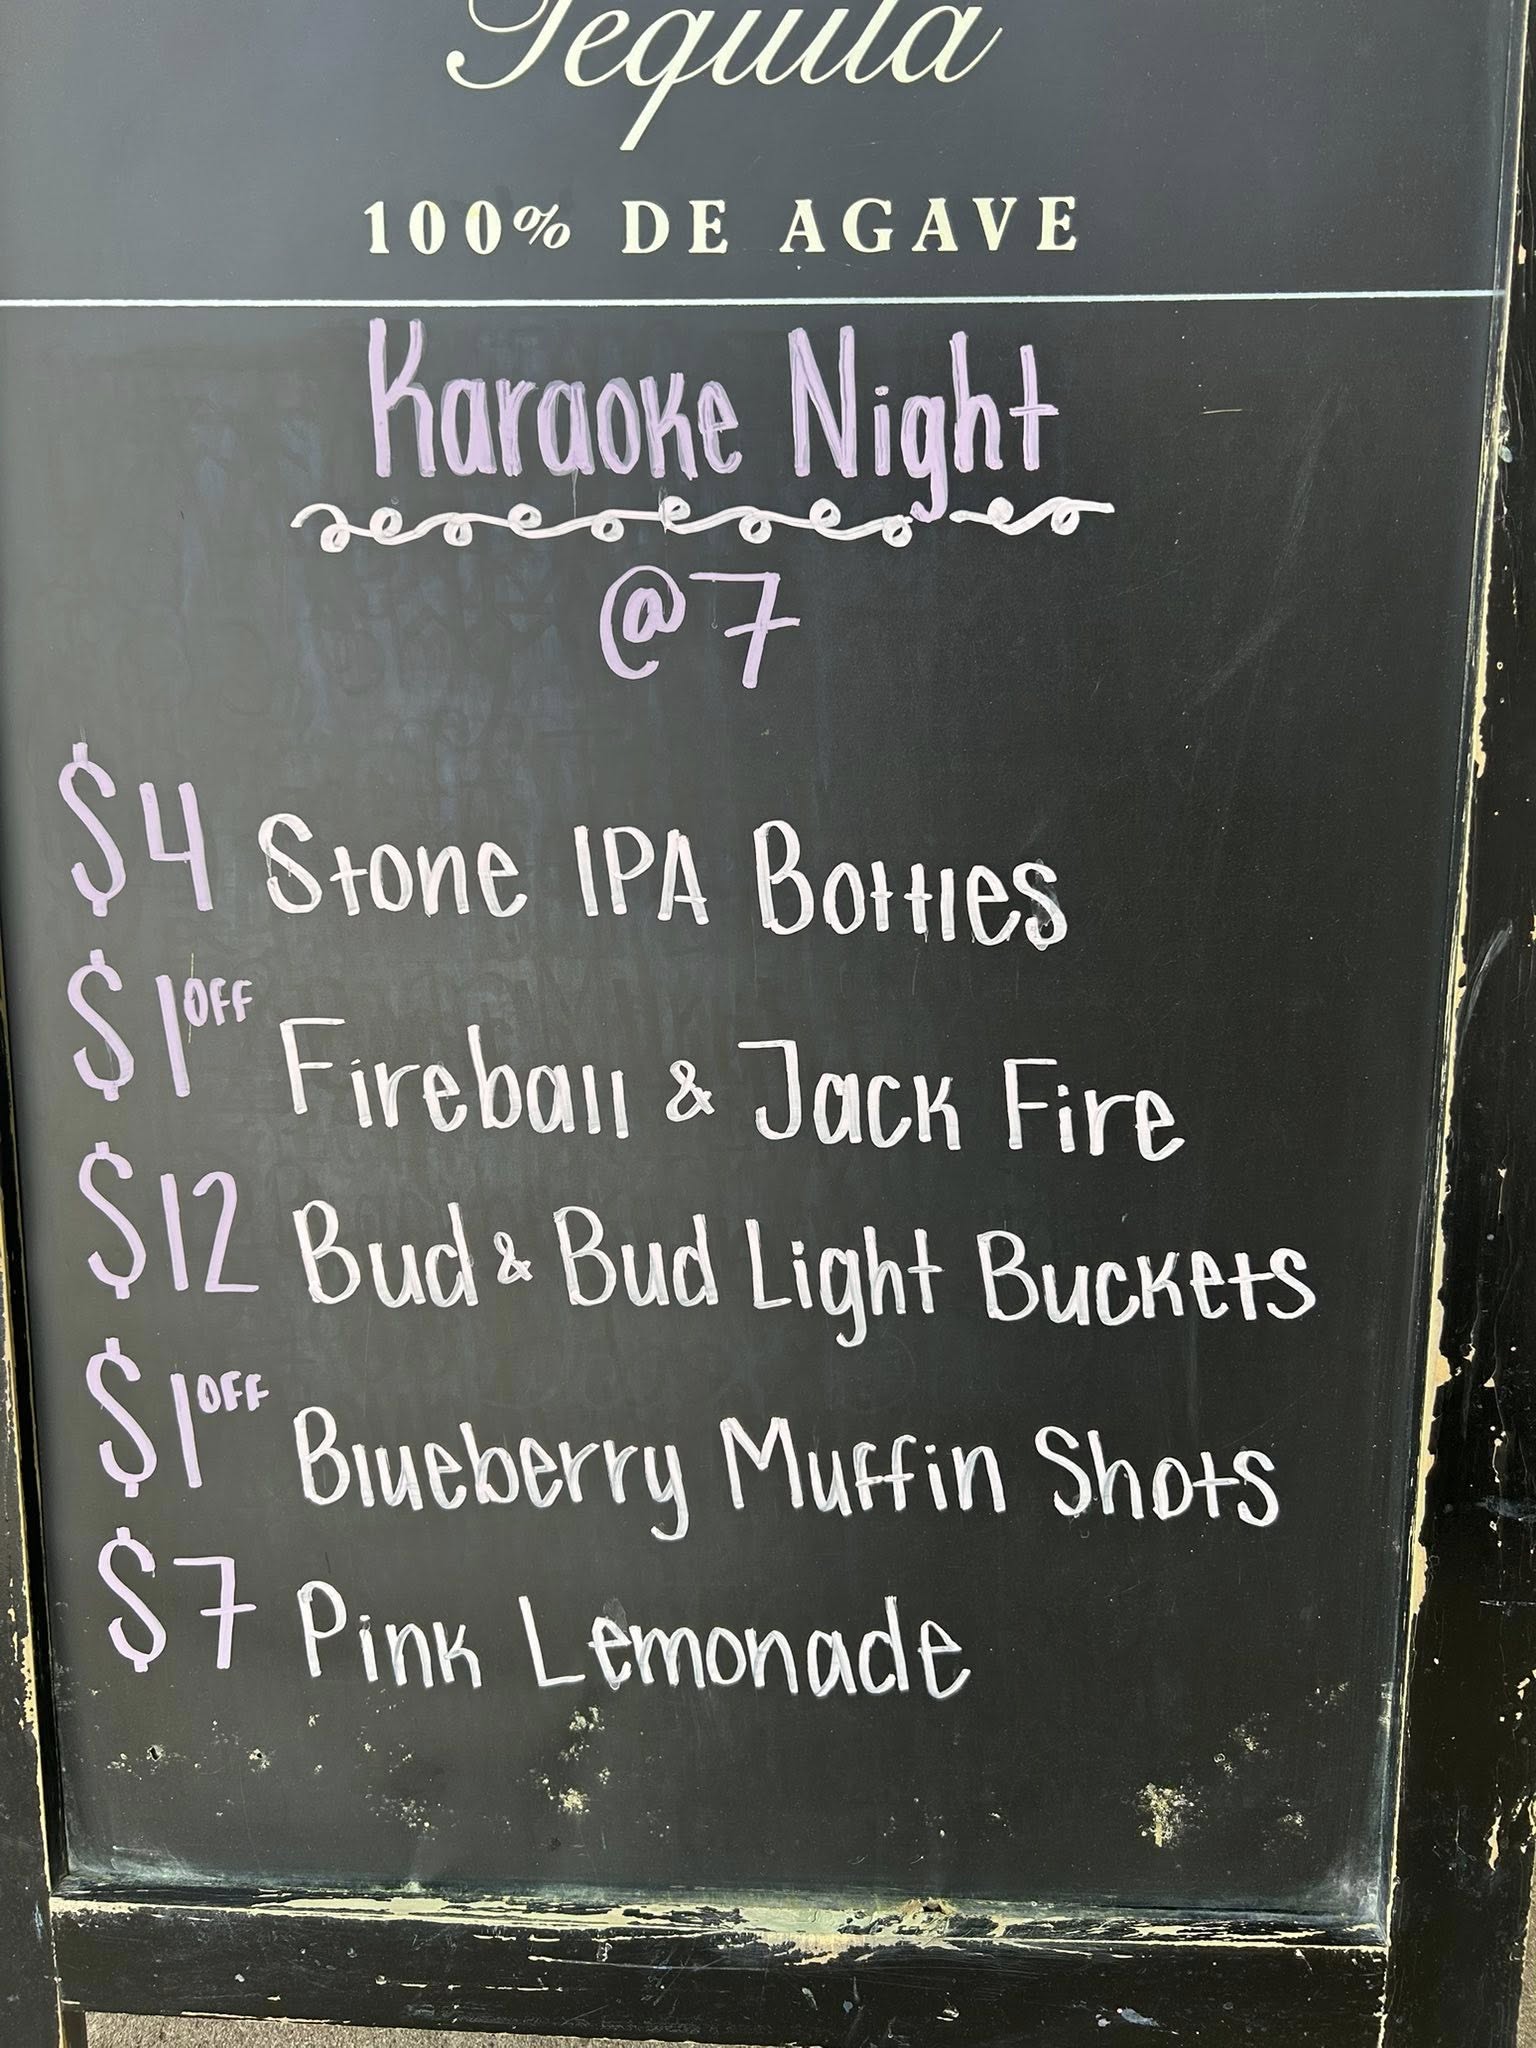 Tequila
100% DE AGAVE
Karaoke Night
@7
$4 Stone IPA Bottles
$1 OFF Fireball & Jack Fire
$12 Bud & Bud Light Buckets
$1 OFF Blueberry Muffin Shots
$7 Pink Lemonade